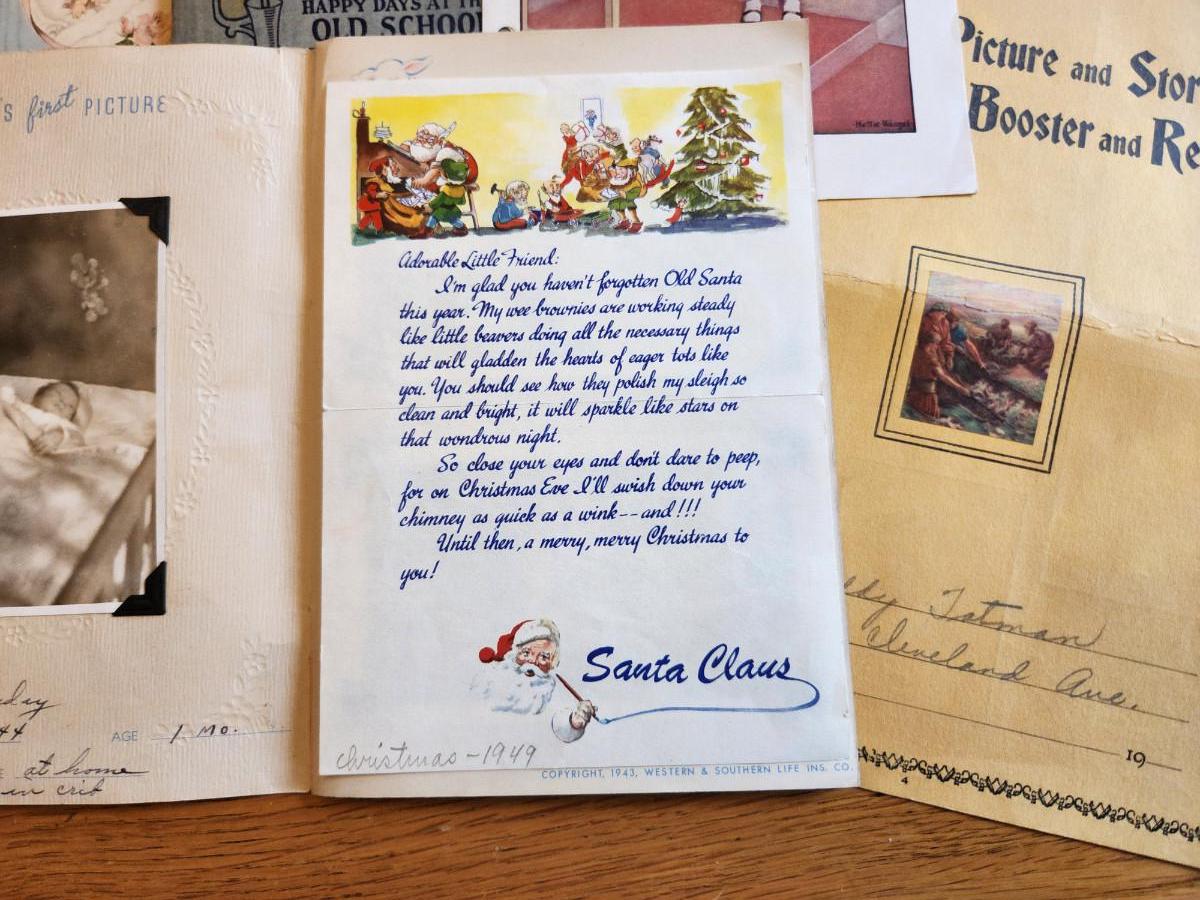 HAPPY DAYS AT TH
OLD SCHOO
S first PICTURE
44
AGE 1 Mo.
at home
in crib
Adorable Little Friend:
I'm glad you haven't forgotten Old Santa
this year. My wee brownies are working steady
like little beavers doing all the necessary things
that will gladden the hearts of eager tots like
you. You should see how they polish my sleigh so
clean and bright, it will sparkle like stars on
that wondrous night.
So close your eyes and don't dare to peep,
for on Christmas Eve I'll swish down your
chimney as quick as a wink--and!!!
Until then, a merry, merry Christmas to
you!
Santa Claus
Christmas - 1949
COPYRIGHT, 1943, WESTERN & SOUTHERN LIFE INS. CO.
Picture and Stor
Booster and Re
dy Tatman
Cleveland Ave.
19
4